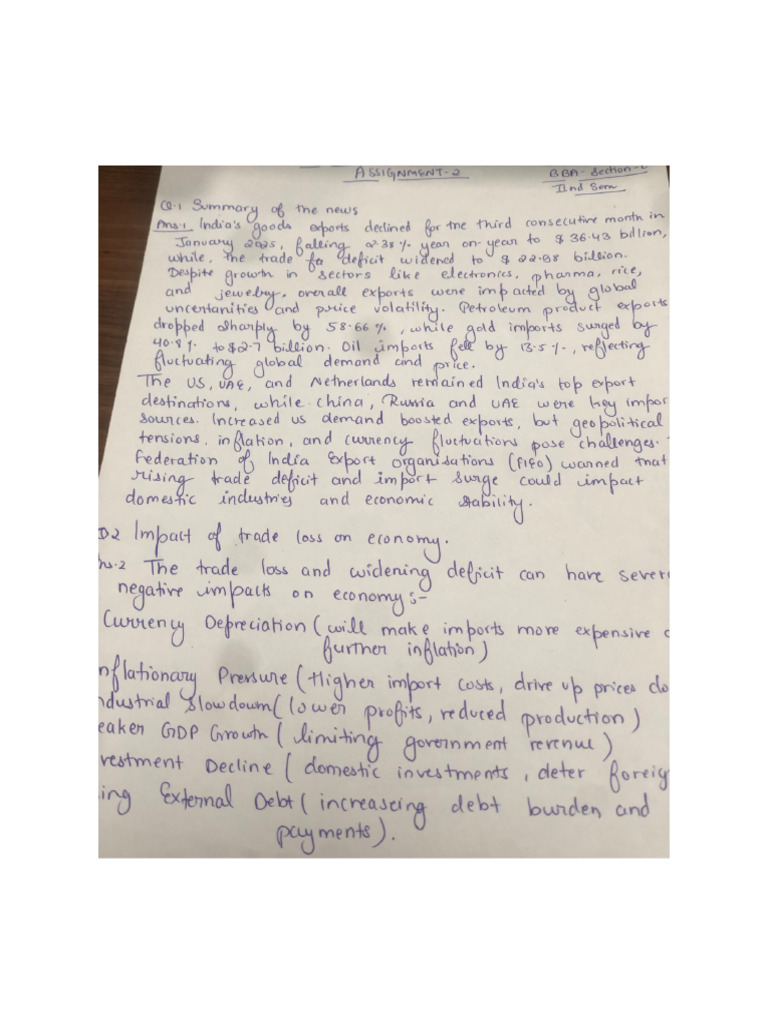 ASSIGNMENT-2
BBA - Section-
IInd Sem
Q.1 Summary of the news
Ans.1 India's goods exports declined for the third consecutive month in
January 2025, falling 2.38 % year on year to $ 36.43 billion,
while, the trade deficit widened to $ 22.98 billion.
Despite growth in sectors like electronics, pharma, rice,
and jewelry, overall exports were impacted by global
uncertanities and price volatility. Petroleum product exports
dropped sharply by 58.66 %, while gold imports surged by
40.8 % to $2.7 billion. Oil imports fell by 13.5 %, reflecting
fluctuating global demand and price.
The US, UAE, and Netherlands remained India's top export
destinations, while China, Russia and UAE were key impor
sources. Increased US demand boosted exports, but geopolitical
tensions, inflation, and currency fluctuations pose challenges.
Federation of India Export Organisations (FIEO) warned that
rising trade deficit and import surge could impact
domestic industries and economic stability.
Q2 Impact of trade loss on economy.
ns.2 The trade loss and widening deficit can have severe
negative impacts on economy:-
Currency Depreciation (will make imports more expensive
further inflation)
nflationary Pressure (Higher import costs, drive up prices do
ndustrial Slowdown (lower profits, reduced production)
eaker GDP Growth (limiting government revenue)
vestment Decline (domestic investments, deter foreig
ing External Debt (increaseing debt burden and
payments).